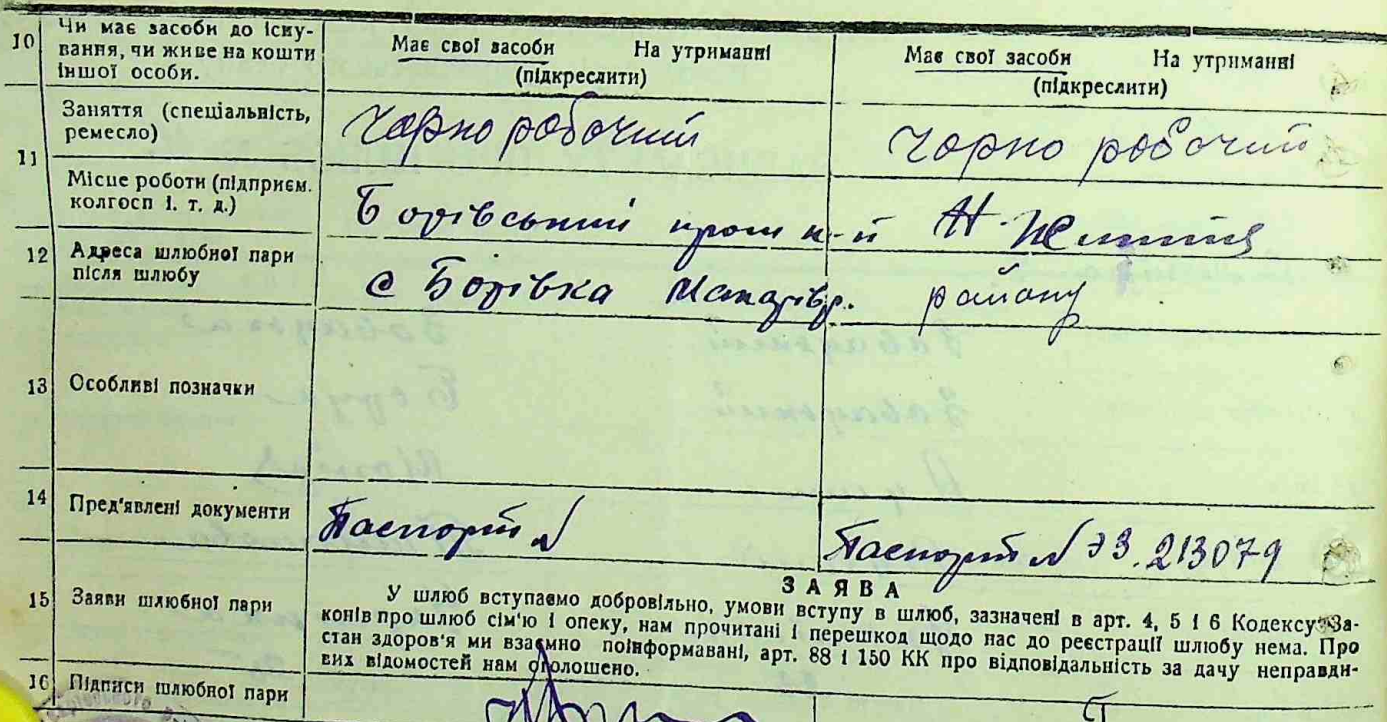 10 Чи має засоби до існу-
вання, чи живе на кошти
іншої особи.
Має свої засоби На утриманні
(підкреслити)
Має свої засоби На утриманні
(підкреслити)
11 Заняття (спеціальність,
ремесло)
Чорно робочий
Чорно робочий
Місце роботи (підприєм.
колгосп і. т. д.)
Борівський пром к-й Н-Життя
12 Адреса шлюбної пари
після шлюбу
с Борівка району
13 Особливі позначки
14 Пред'явлені документи
Паспорт №
Паспорт № ЭЗ.213079
15 Заяви шлюбної пари
ЗАЯВА
У шлюб вступаємо добровільно, умови вступу в шлюб, зазначені в арт. 4, 5 і 6 Кодексу За-
конів про шлюб сім'ю і опеку, нам прочитані і перешкод щодо нас до реєстрації шлюбу нема. Про
стан здоров'я ми взаємно поінформавані, арт. 88 і 150 КК про відповідальність за дачу неправди-
вих відомостей нам оголошено.
16 Підписи шлюбної пари